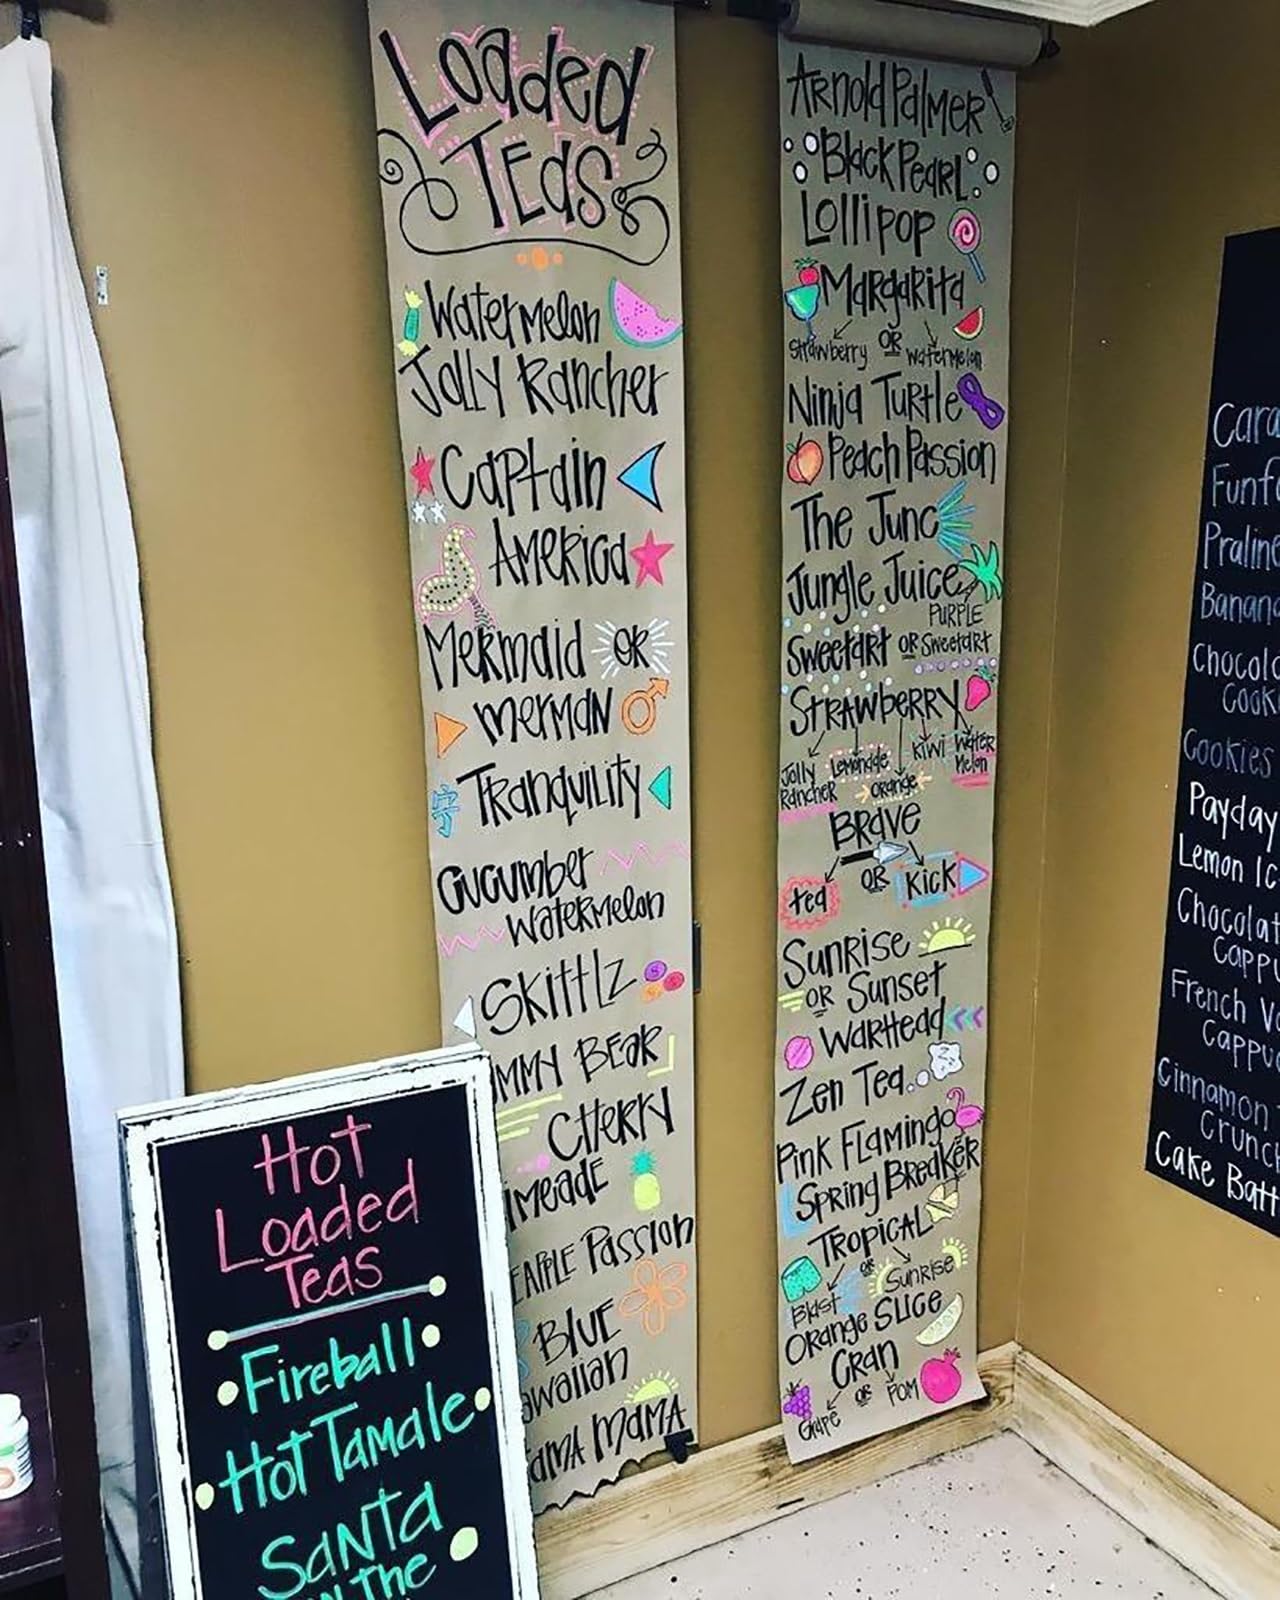 Loaded
Teas
Watermelon
Jolly Rancher
Captain
America
Mermaid or
merman
Tranquility
Cucumber
Watermelon
Skittlz
MMY BEAR
CHERRY
IMEADE
EAPPLE Passion
BLUE
awaiian
AMA MAMA
Arnold Palmer
Black Pearl
Lollipop
Margarita
Strawberry OR watermelon
Ninja Turtle
Peach Passion
The Junc
Jungle Juice
PURPLE
Sweetart OR Sweetart
Strawberry
Jolly Rancher
Lemonade
orange
kiwi
Water
Melon
BRAVE
red OR Kick
Sunrise
OR Sunset
Warhead
Zen Tea
Pink Flamingo
Spring Breaker
Tropical
Blast OR Sunrise
Orange Slice
Cran
Grape OR POM
Hot
Loaded
Teas
Fireball
Hot Tamale
Santa
the
Cara
Funf
Praline
Banan
Chocol
Cook
Cookies
Payday
Lemon Ic
Chocolat
Cappu
French V
Cappu
Cinnamon
Crunch
Cake Batt